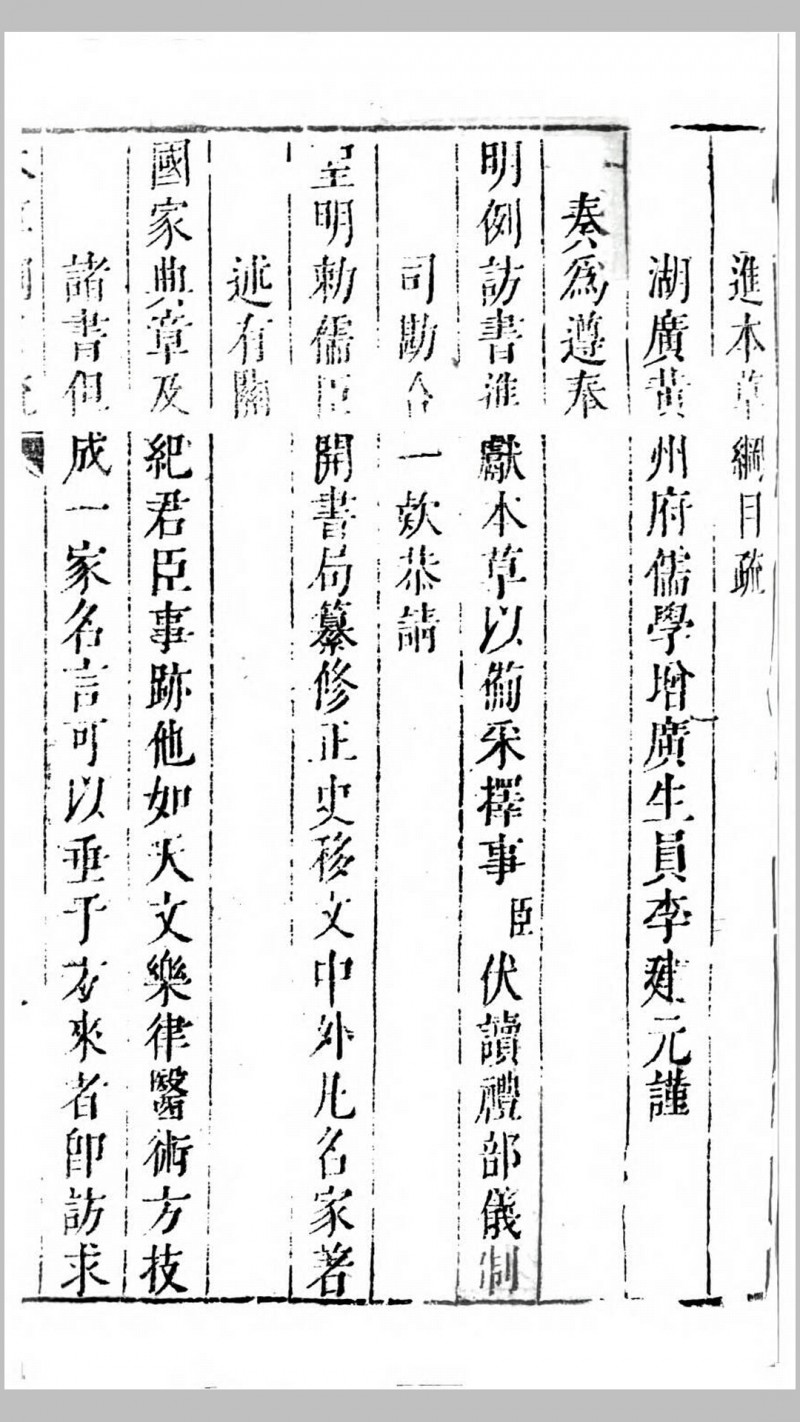 進本草綱目疏
湖廣黃州府儒學增廣生員李建元謹
奏爲遵奉
明例訪書進獻本草以備采擇事臣伏讀禮部儀制
司勘合一欵恭請
聖明勅儒臣開書局纂修正史移文中外凡名家著
述有關
國家典章及紀君臣事跡他如天文樂律醫術方技
諸書但成一家名言可以垂于方來者卽訪求